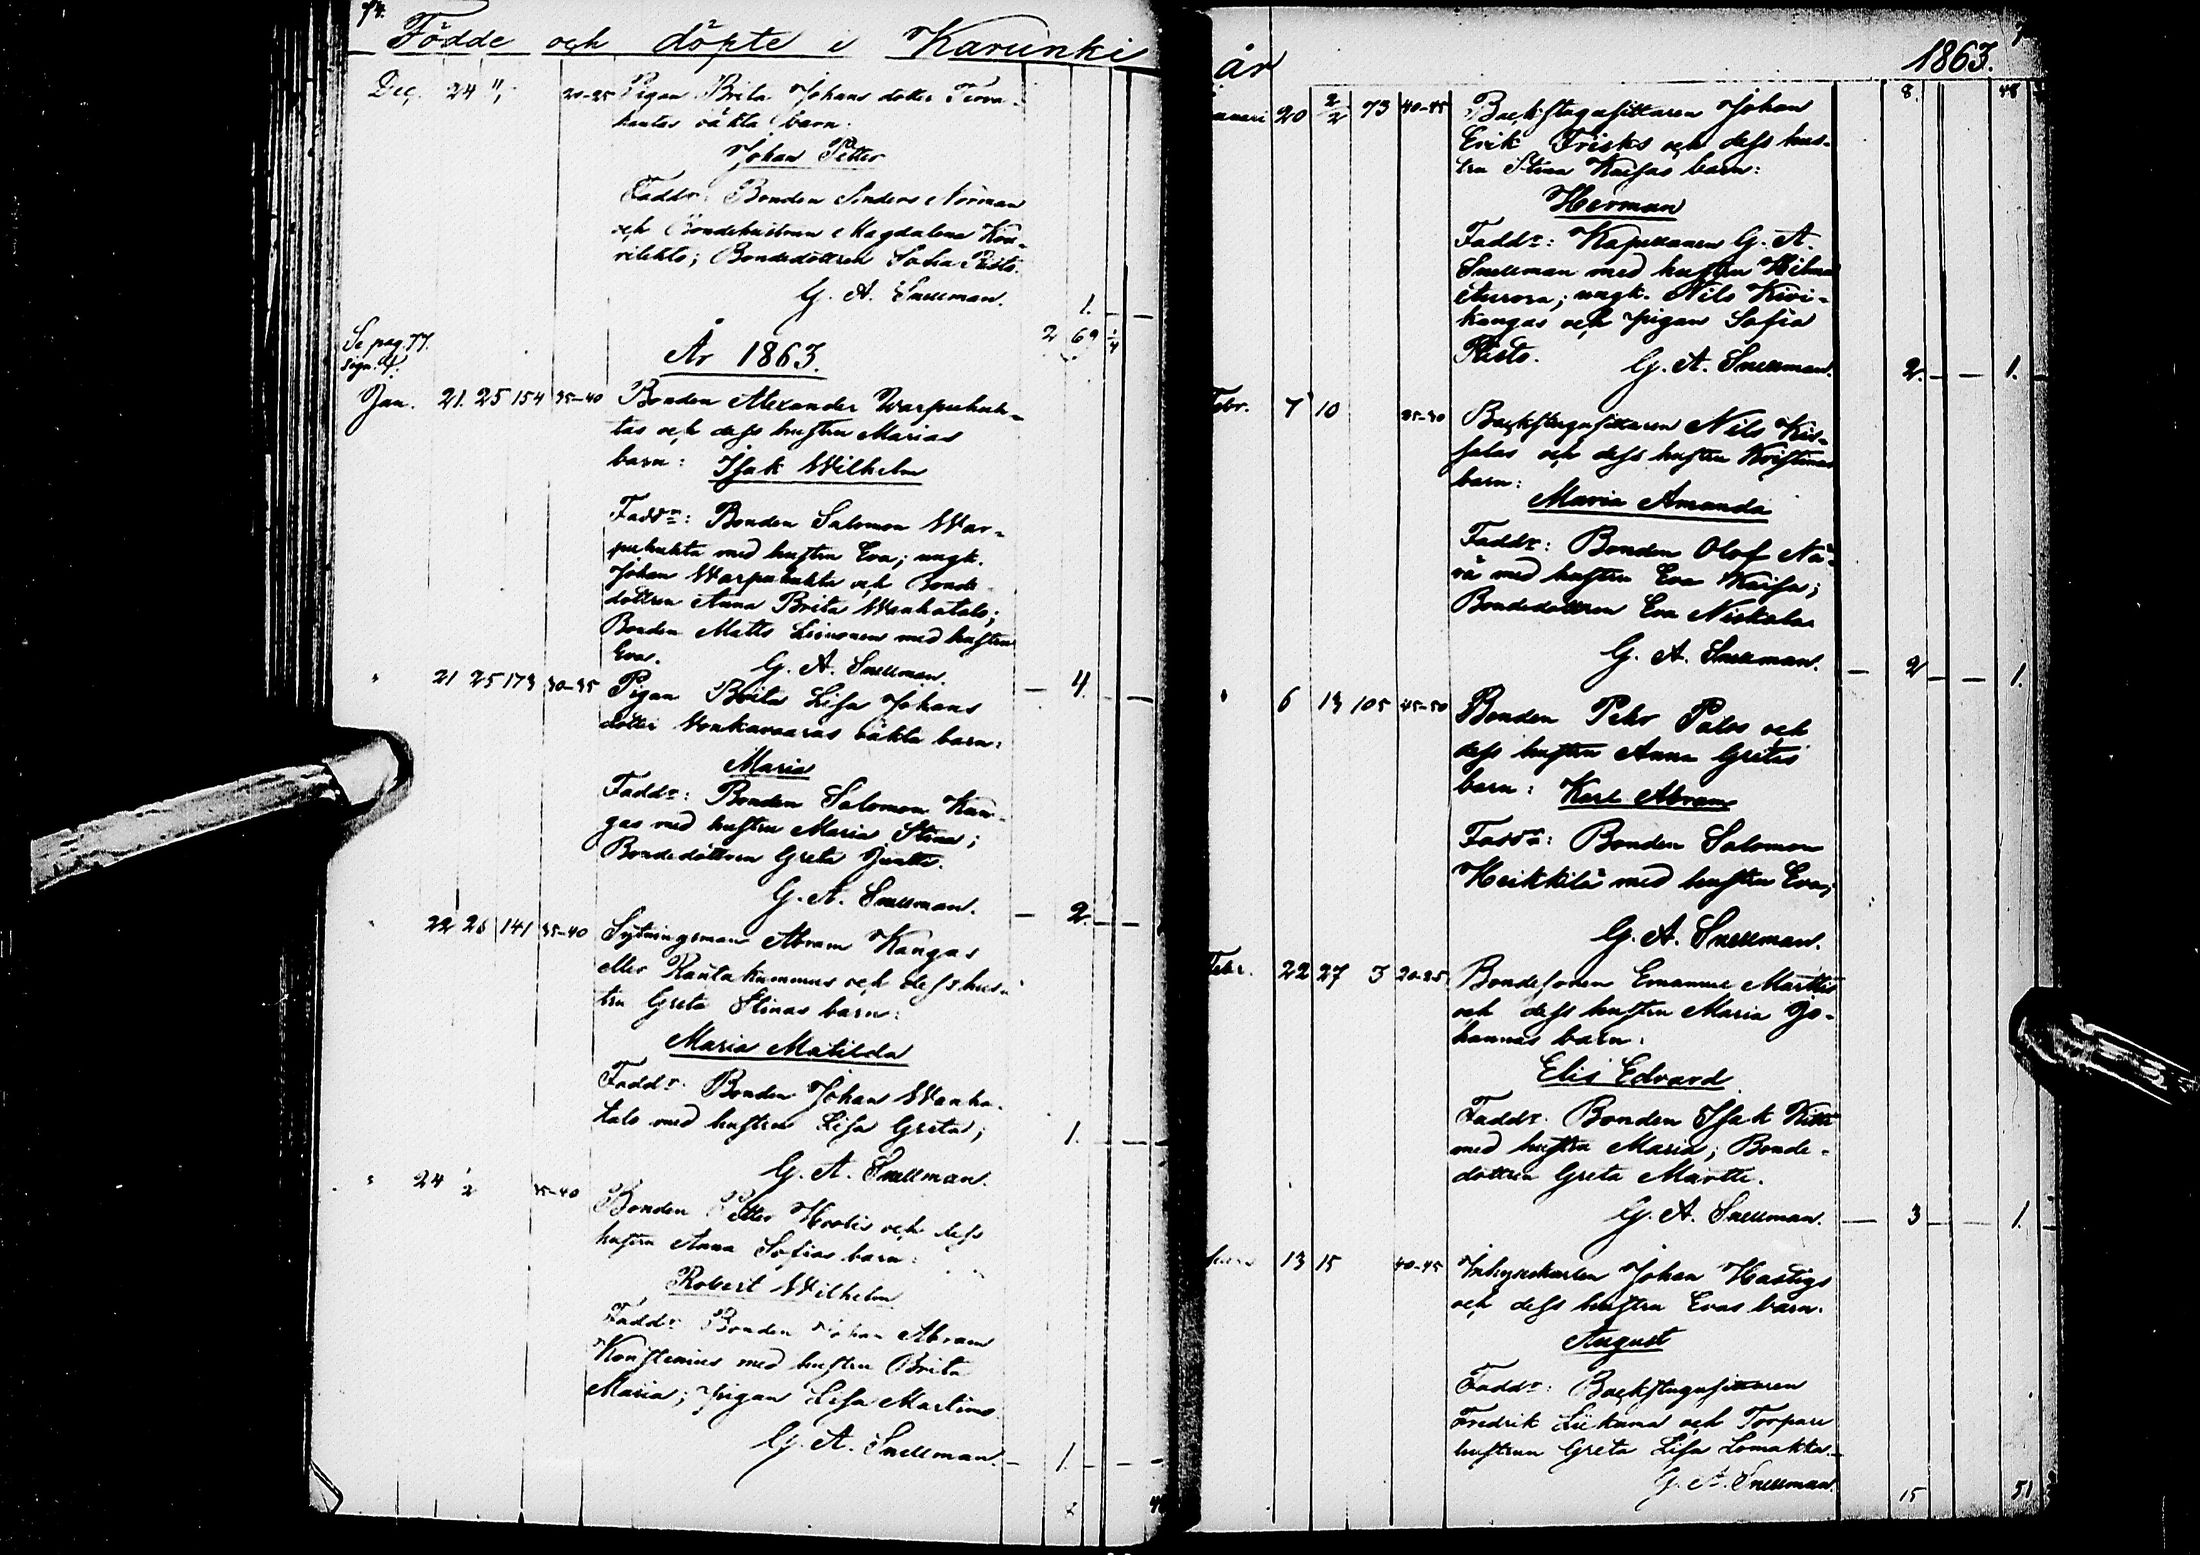 74.
Födde och döpte i Karunki
Dec. 24 " 20-25 Pigan Brita Johans dotter
oäkta barn:
Johan Petter
Faddr: Bonden Anders Norman
och Bondehustrun Magdalena
Bondedottren Sofia Risto.
G. A. Snellman.
1.
2 69 1/4
Se pag. 77.
sign.
År 1863.
Jan. 21. 25 154 35-40 Bonden Alexander Warpuhuh-
tas och dess hustru Marias
barn: Isak Wilhelm
Faddr: Bonden Salomon War-
puhuhta med hustru Eva; ungk.
Johan Warpuhuhta och Bonde-
dottren Anna Brita Wanhatalo;
Bonden Matts med hustru
Eva. G. A. Snellman.
4.
" 21 25 173 30-35 Pigan Brita Lisa Johans
dotter Vonkavaaras oäkta barn:
Maria
Faddr: Bonden Salomon Kan-
gas med hustru Maria Stina;
Bondedottren Greta Juntti.
G. A. Snellman.
2.
" 22 25 141 35-40 Sytningsman Abram Kangas
eller Rautakummus och dess hus-
tru Greta Stinas barn:
Maria Matilda
Faddr: Bonden Johan Wanha-
talo med hustru Lisa Greta;
1.
G. A. Snellman.
" 24 1/2 35-40 Bonden Petter och dess
hustru Anna Sofias barn:
Robert Wilhelm
Faddr: Bonden Johan Abram
Konstenius med hustru Brita
Maria; pigan Lisa Martimo.
G. A. Snellman.
1.
år 1863.
8. 48
20 2/2 73 40-45 Backstugusittaren Johan
Erik Frisks och dess hus-
tru Stina Kaisas barn:
Herman
Faddr: Kapellanen G. A.
Snellman med hustru Hilma
Aurora; ungk. Nils Kivi-
kangas och pigan Sofia
Risto. G. A. Snellman.
2. 1.
Febr. 7 10 25-30 Backstugusittaren Nils
och dess hustru Kristinas
barn:
Maria Amanda
Faddr: Bonden Olof Nä-
rä med hustru Eva Kaisa;
Bondedottren Eva Niskala.
G. A. Snellman.
2 1.
" 6 13 105 45-50 Bonden Pehr Palos och
dess hustru Anna Gretas
barn: Karl Abram
Faddr: Bonden Salomon
Heikkilä med hustru Eva;
G. A. Snellman.
Febr. 22 27 3 20-25 Bondesonen Emanuel Marttis
och dess hustru Maria Jo-
hannas barn:
Elis Edvard
Faddr: Bonden Isak
med hustru Maria; Bonde-
dottren Greta Martti.
G. A. Snellman.
3 1.
13 15 40-45 Inhyseskarlen Johan Hastigs
och dess hustru Evas barn:
August
Faddr: Backstugusittaren
Fredrik Liikana och Torpare
hustrun Greta Lisa Lomakka.
G. A. Snellman.
15 51